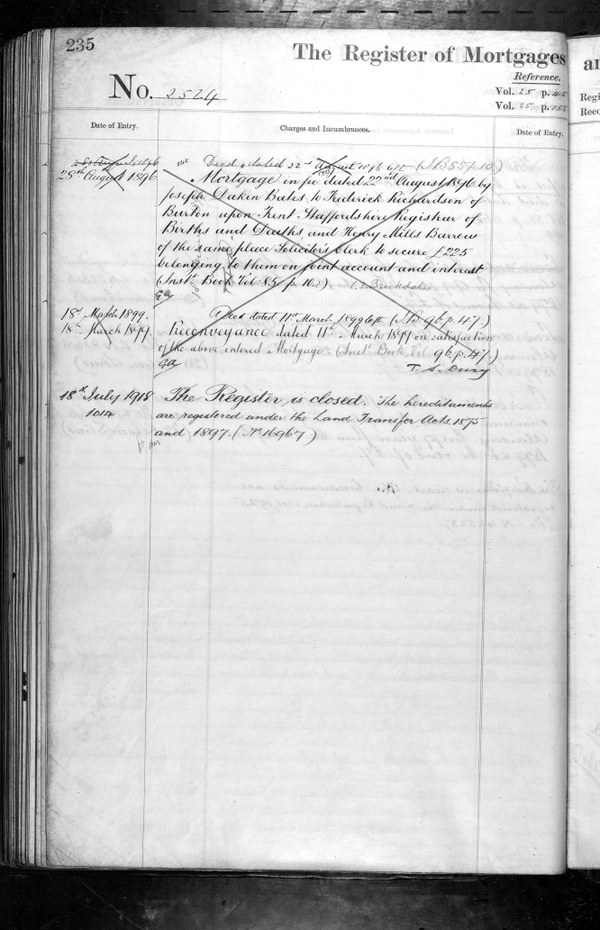 235
The Register of Mortgages
Reference.
No. 2524
Vol. 25 p.
Vol. p.
Date of Entry.
Charges and Incumbrances.
Date of Entry.
Deed dated 22nd August 1896 (I.B. 85 p. 10.)
28th August 1896
Mortgage in fee dated 22nd August 1896 by
Joseph Daken Bates to Frederick Richardson of
Burton upon Trent Staffordshire Registrar of
Births and Deaths and Henry Mills Burrow
of the same place Solicitor's Clerk to secure £225
belonging to them on joint account and interest
(Inst. Book Vol. 85 p. 10.)
18th March 1899.
Deed dated 11th March 1899 (I.B. 96 p. 47.)
18th March 1899.
Reconveyance dated 11th March 1899 on satisfaction
of the above entered Mortgage (Inst. Book Vol. 96 p. 47.)
18th July 1918
The Register is closed. The hereditaments
1014
are registered under the Land Transfer Acts. 1875
and 1897. (No 16967)
Regi
Reco